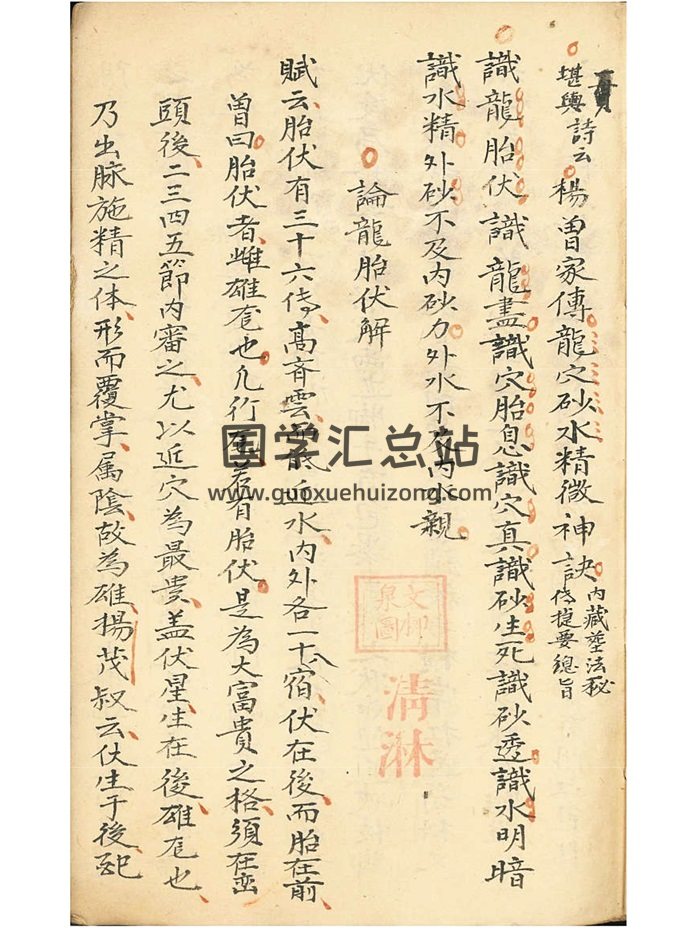 堪輿詩云楊曽家傳龍穴砂水精微神訣内藏塋法秘
傳提要總旨
識龍胎伏識龍盡識穴胎息識穴真識砂生死識砂透識水明暗
識水精外砂不及内砂力外水不及内水親
論龍胎伏解
賦云胎伏有三十六傳高齊雲低近水内外各一十八宿伏在後而胎在前
曽曰胎伏者雌雄也凡行若有胎伏是為大富貴之格須在巒
頭後二三四五節内審之尤以近穴為最貴盖伏星生在後雄也
乃出脉施精之体形而覆掌属陰故為雄楊茂叔云伏生于後
文
泉圖
清淋
国学汇总站
www.guoxuehuizong.com